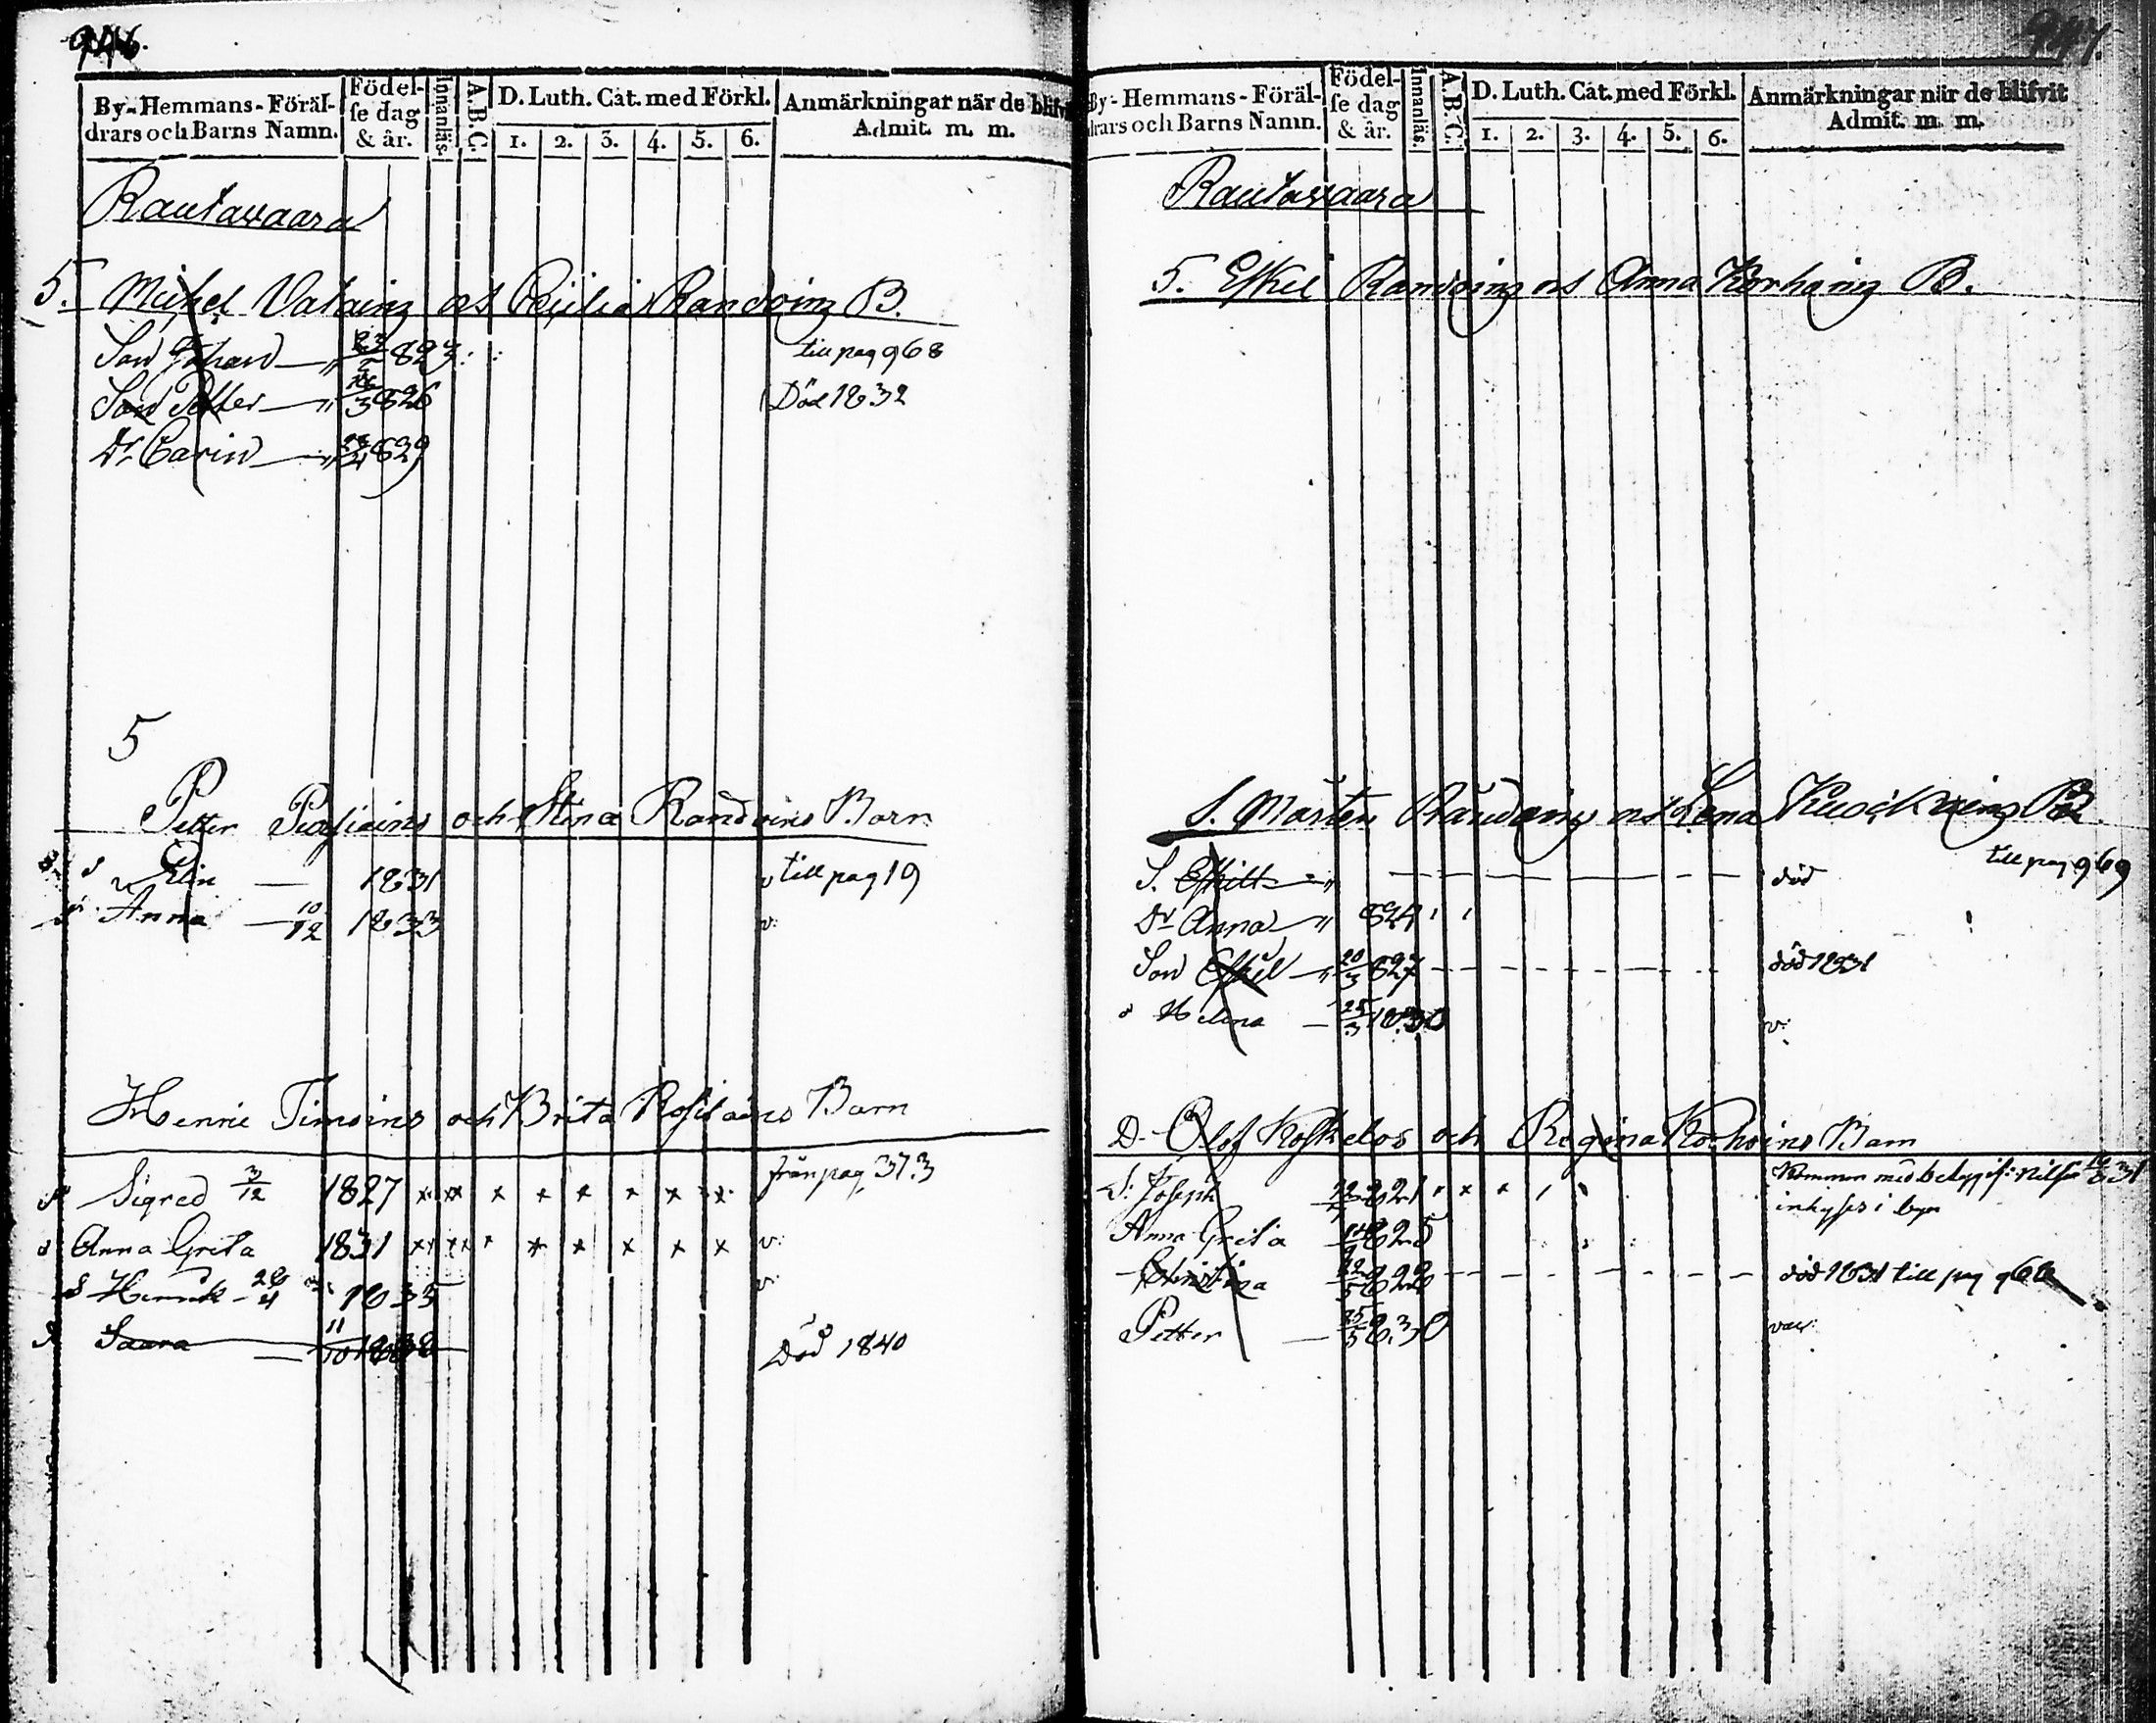 946.
By-Hemmans-Föräl-
drars och Barns Namn.
Födel-
se dag
& år.
Innanläs.
A.B.C.
D. Luth. Cat. med Förkl.
1. 2. 3. 4. 5. 6.
Anmärkningar när de blifvit
Admit. m. m.
Rautavaara
5. Mickel Vatainz et Cecilia Randoinz B.
Son Johan 823 till pag 968
Son Petter 3 826 Död 1832
Dr Carin 829
5
Petter Piasiains och Stina Randoins Barn
Elin — 1831 till pag 19
Anna — 10/12 1833 v:
Henric Timoins och Brita Barn
Sigred 3/12 1827 x x x x x x x x från pag 373
d Anna Greta 1831 x x x x x x x v:
S Henrik 1835 v:
Saara — 11/10 1838 Död 1840
947.
By-Hemmans-Föräl-
drars och Barns Namn.
Födel-
se dag
& år.
Innanläs.
A.B.C.
D. Luth. Cat. med Förkl.
1. 2. 3. 4. 5. 6.
Anmärkningar när de blifvit
Admit. m. m.
Rautavaara
5. Eskel Randoinz et Anna Korhoinz B.
S. Mårten Randoinz et Lena B
till pag 969
S. Eskill död
Dr Anna 824
Son Eskel 20/3 827 död 1831
d Helena — 25/3 1830 v:
D. Olof Koskelos och Regina Korhoins Barn
S. Joseph 821 Kommen med
inhyses i byn
Anna Greta 825
Christina 828 död 1831 till pag 966
Petter — 25/5 830 vac: